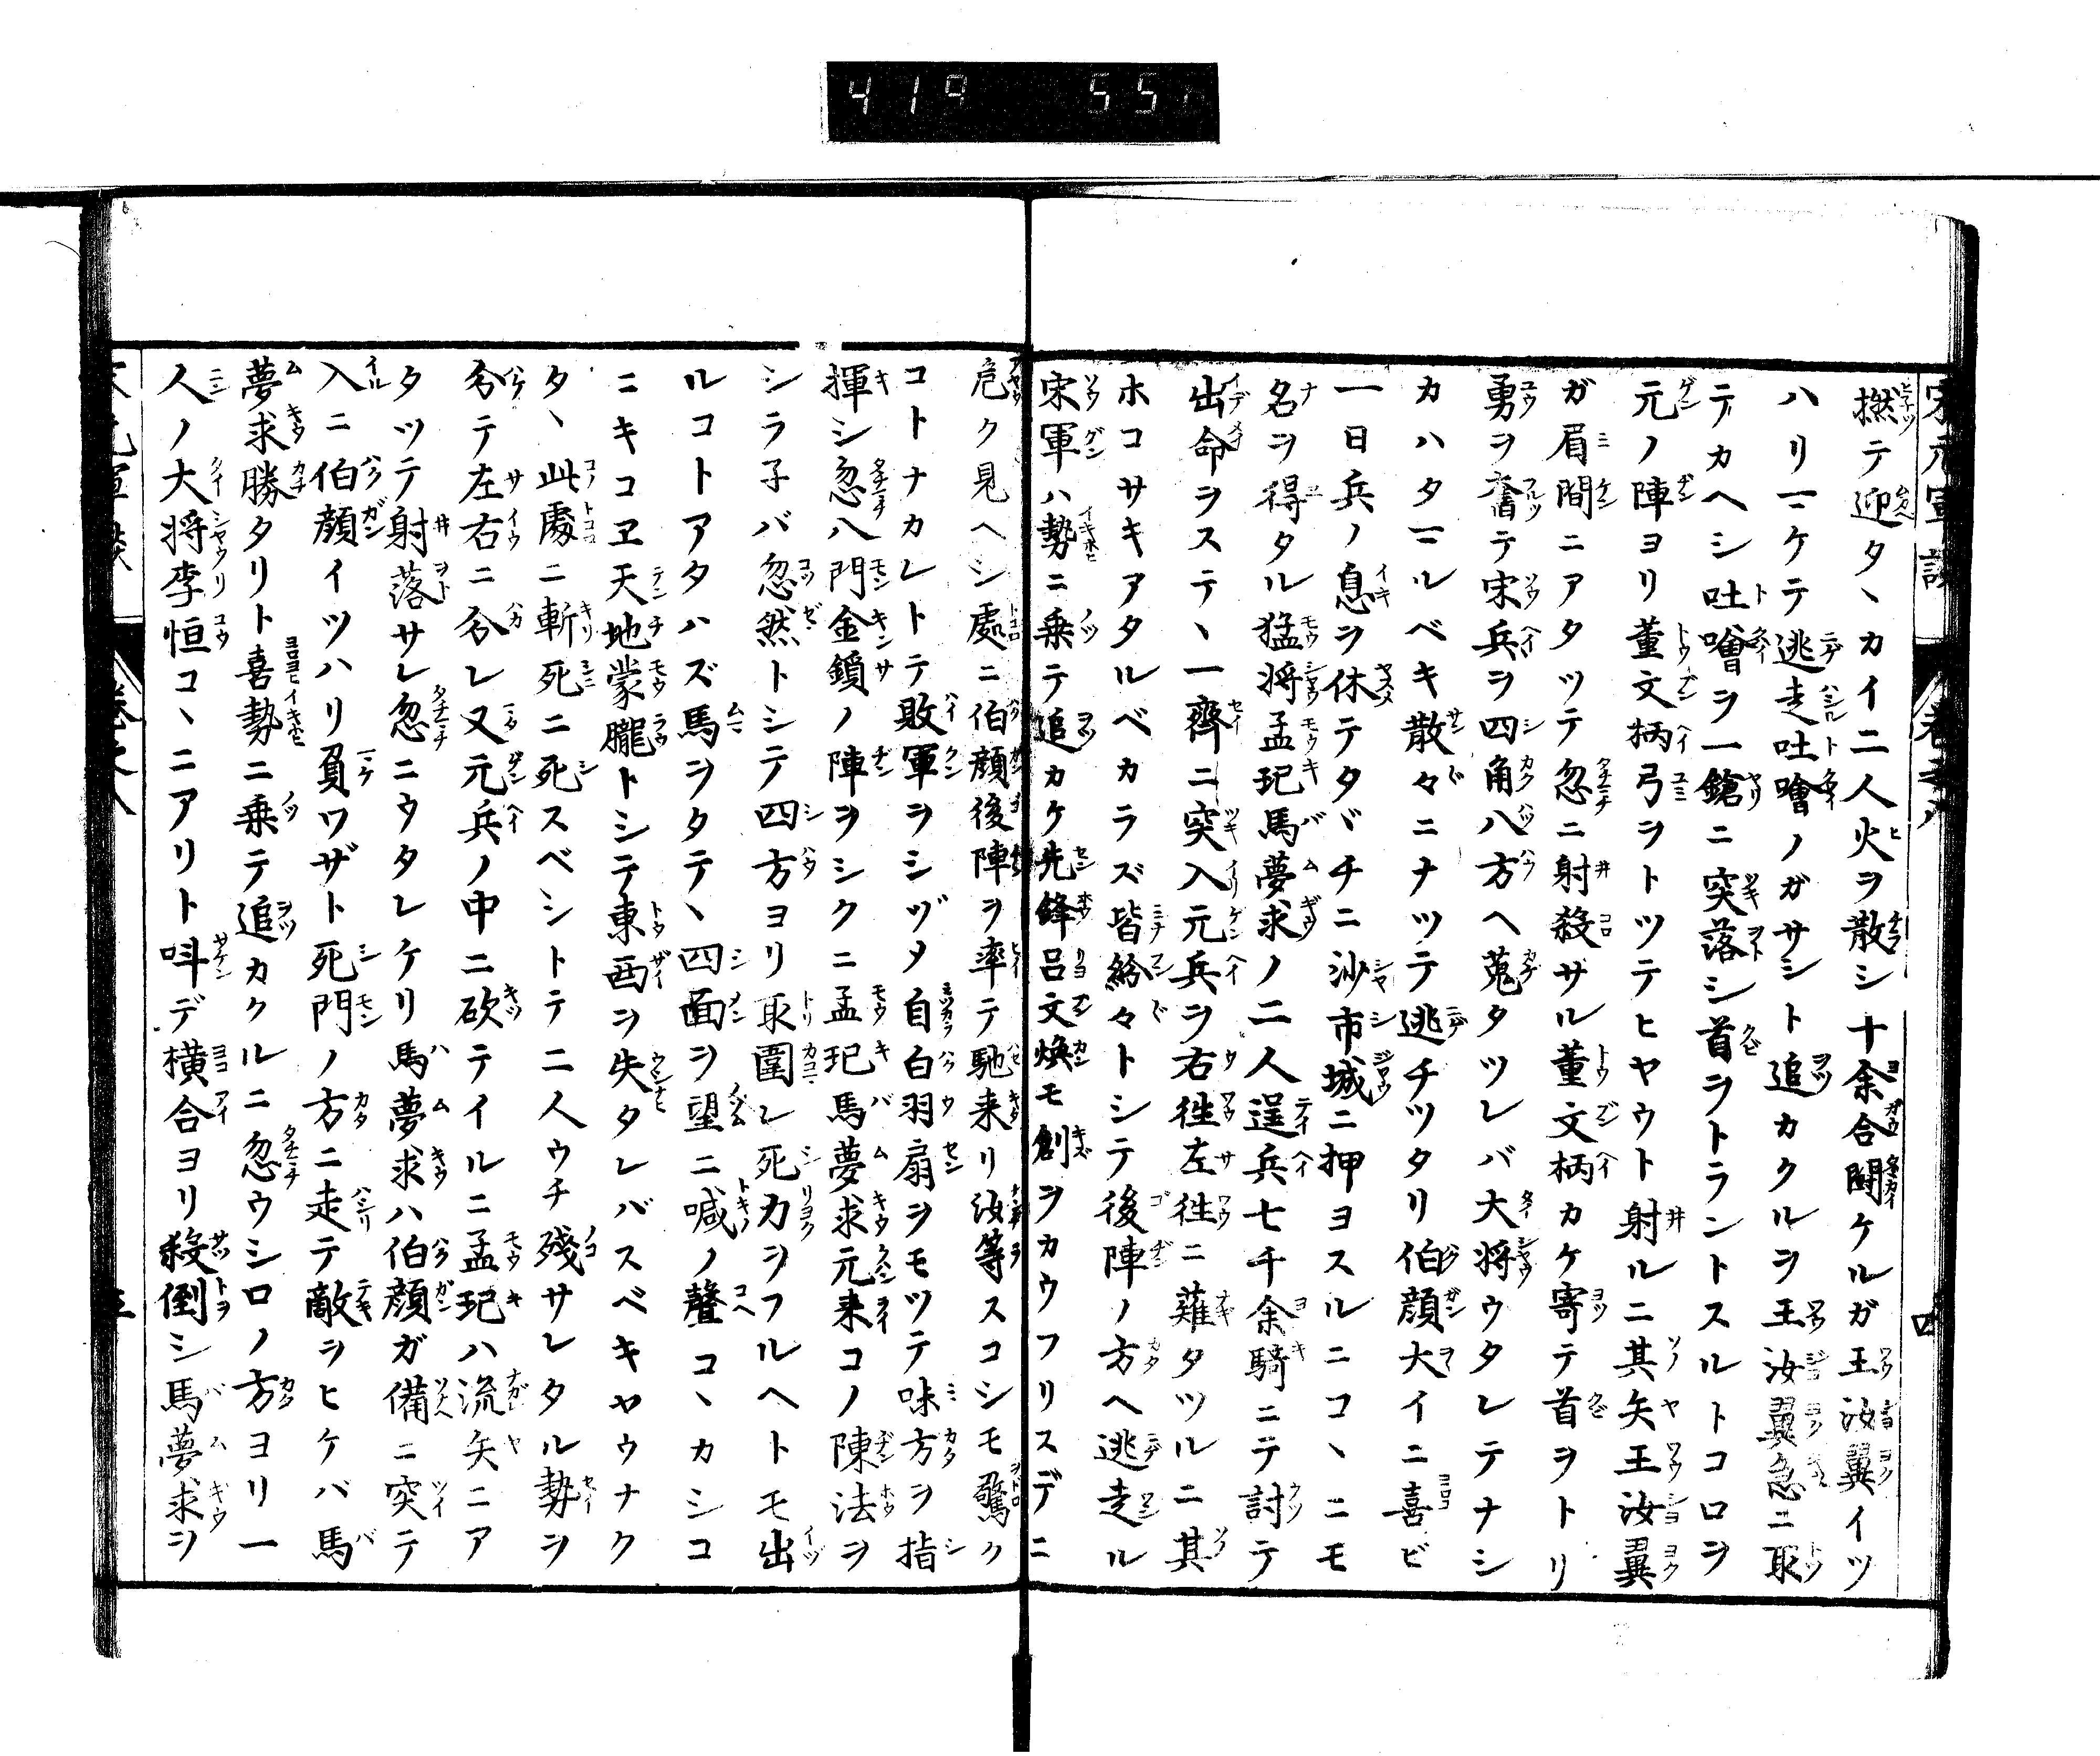 419 55
宋元軍談 巻之八 四
撚テ迎タヽカイ二人火ヲ散シ十余合闘ケルガ王汝翼イツ
ハリマケテ逃走吐噲ノガサシト追カクルヲ王汝翼急ニ取
テカヘシ吐噲ヲ一鎗ニ突落シ首ヲトラントスルトコロヲ
元ノ陣ヨリ董文柄弓ヲトツテヒヤウト射ルニ其矢王汝翼
ガ眉間ニアタツテ忽ニ射殺サル董文柄カケ寄テ首ヲトリ
勇ヲ奮テ宋兵ヲ四角八方ヘ蒐タツレバ大将ウタレテナシ
カハタマルベキ散々ニナツテ逃チツタリ伯顔大イニ喜ビ
一日兵ノ息ヲ休テタヾチニ沙市城ニ押ヨスルニコヽニモ
名ヲ得タル猛将孟玘馬夢求ノ二人逞兵七千余騎ニテ討テ
出命ヲステヽ一齊ニ突入元兵ヲ右徃左徃ニ薙タツルニ其
ホコサキアタルベカラズ皆紛々トシテ後陣ノ方ヘ逃走ル
宋軍ハ勢ニ乗テ追カケ先鋒呂文煥モ創ヲカウフリスデニ
危ク見ヘシ處ニ伯顔後陣ヲ率テ馳来リ汝等スコシモ驚ク
コトナカレトテ敗軍ヲシヅメ自白羽扇ヲモツテ味方ヲ指
揮シ忽八門金鎖ノ陣ヲシクニ孟玘馬夢求元来コノ陳法ヲ
シラ子バ忽然トシテ四方ヨリ取圍レ死力ヲフルヘトモ出
ルコトアタハズ馬ヲタテヽ四面ヲ望ニ喊ノ聲コヽカシコ
ニキコヱ天地蒙朧トシテ東西ヲ失タレバスベキヤウナク
タヽ此處ニ斬死ニ死スベシトテ二人ウチ残サレタル勢ヲ
分テ左右ニ分レ又元兵ノ中ニ砍テイルニ孟玘ハ流矢ニア
タツテ射落サレ忽ニウタレケリ馬夢求ハ伯顔ガ備ニ突テ
入ニ伯顔イツハリ負ワザト死門ノ方ニ走テ敵ヲヒケバ馬
夢求勝タリト喜勢ニ乗テ追カクルニ忽ウシロノ方ヨリ一
人ノ大将李恒コヽニアリト呌デ横合ヨリ殺倒シ馬夢求ヲ